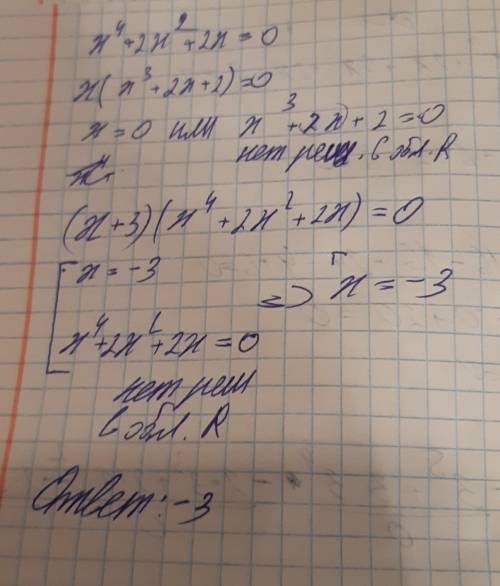 x⁴+2x²+2x=0
x(x³+2x+2)=0
x=0 или x³+2x+2=0
нет реш. в обл. R
(x+3)(x⁴+2x²+2x)=0
[x=-3
=> [x=-3
x⁴+2x²+2x=0
нет реш
в обл. R
Ответ: -3